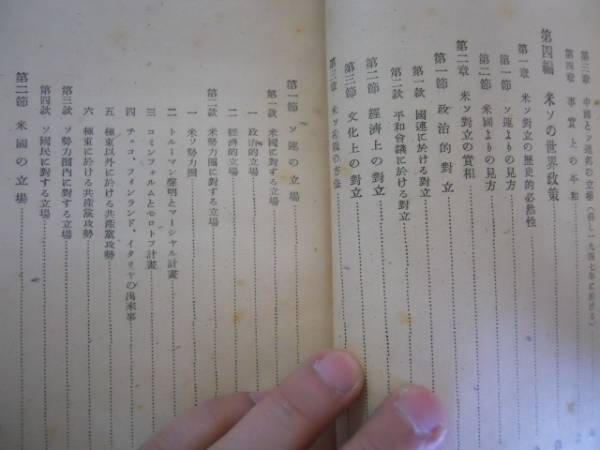 第三章 中國とソ連邦の立場
第四章 事實上の平和
第四編 米ソの世界政策
第一章 米ソ對立の歴史的必然性
第一節 ソ連よりの見方
第二節 米國よりの見方
第二章 米ソ對立の實相
第一節 政治的對立
第一款 國連に於ける對立
第二款 平和會議に於ける對立
第二節 經濟上の對立
第三節 文化上の對立
第三章 米ソ
第一節 ソ連の立場
第一款 米國に對する立場
一 政治的立場
二 經濟的立場
第二款 米勢力圏に對する立場
一 米ソ勢力圏
二 トルーマン聲明とマーシャル計畫
三 コミンフォルムとモロトフ計畫
四 チェコ、フィンランド、イタリヤの出來事
五 極東以外に於ける共産黨攻勢
六 極東に於ける共産黨攻勢
第三款 ソ勢力圏內に對する立場
第四款 ソ國民に對する立場
第二節 米國の立場